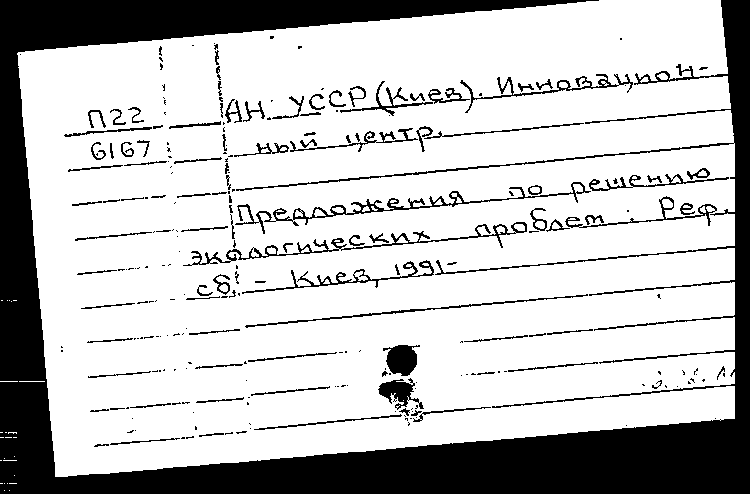 П22
6167
АН УССР (Киев). Инновацион-
ный центр.
Предложения по решению
экологических проблем : Реф.
сб. - Киев, 1991-